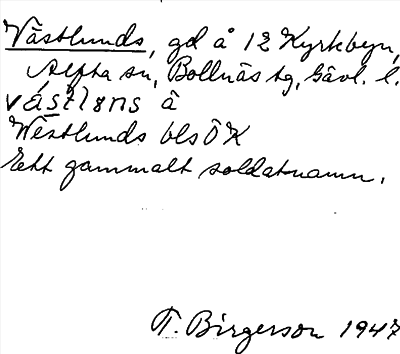 Västlunds, gd å 12 Kyrkbyn,
Alfta sn, Bollnäs tg, Gävl. l.
västlɷns å
Westlunds bls ÖK
Ett gammalt soldatnamn.
T. Birgerson 1947